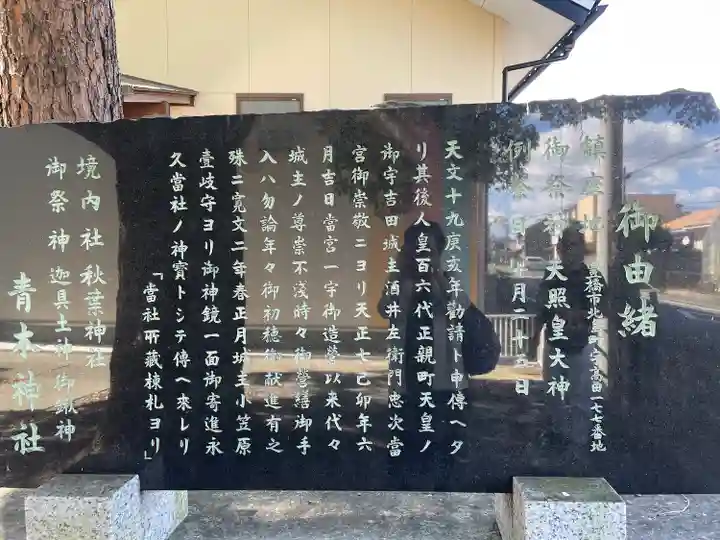 御由緒
鎮座地 豊橋市北島町字高田一七七番地
御祭神 天照皇大神
例祭日 十月二十五日
天文十九庚亥年勧請ト申傳ヘタ
リ其後人皇百六代正親町天皇ノ
御宇吉田城主酒井左衛門忠次當
宮御崇敬ニヨリ天正七己卯年六
月吉日當宮一宇御造營以来代々
城主ノ尊崇不浅時々御營繕御手
入ハ勿論年々御初穂御献進有之
殊ニ寛文二年春正月城主小笠原
壹岐守ヨリ御神鏡一面御寄進永
久當社ノ神寳トシテ傳ヘ來レリ
「當社所藏棟札ヨリ」
境内社 秋葉神社
御祭神 迦具土神 御鍬神
青木神社